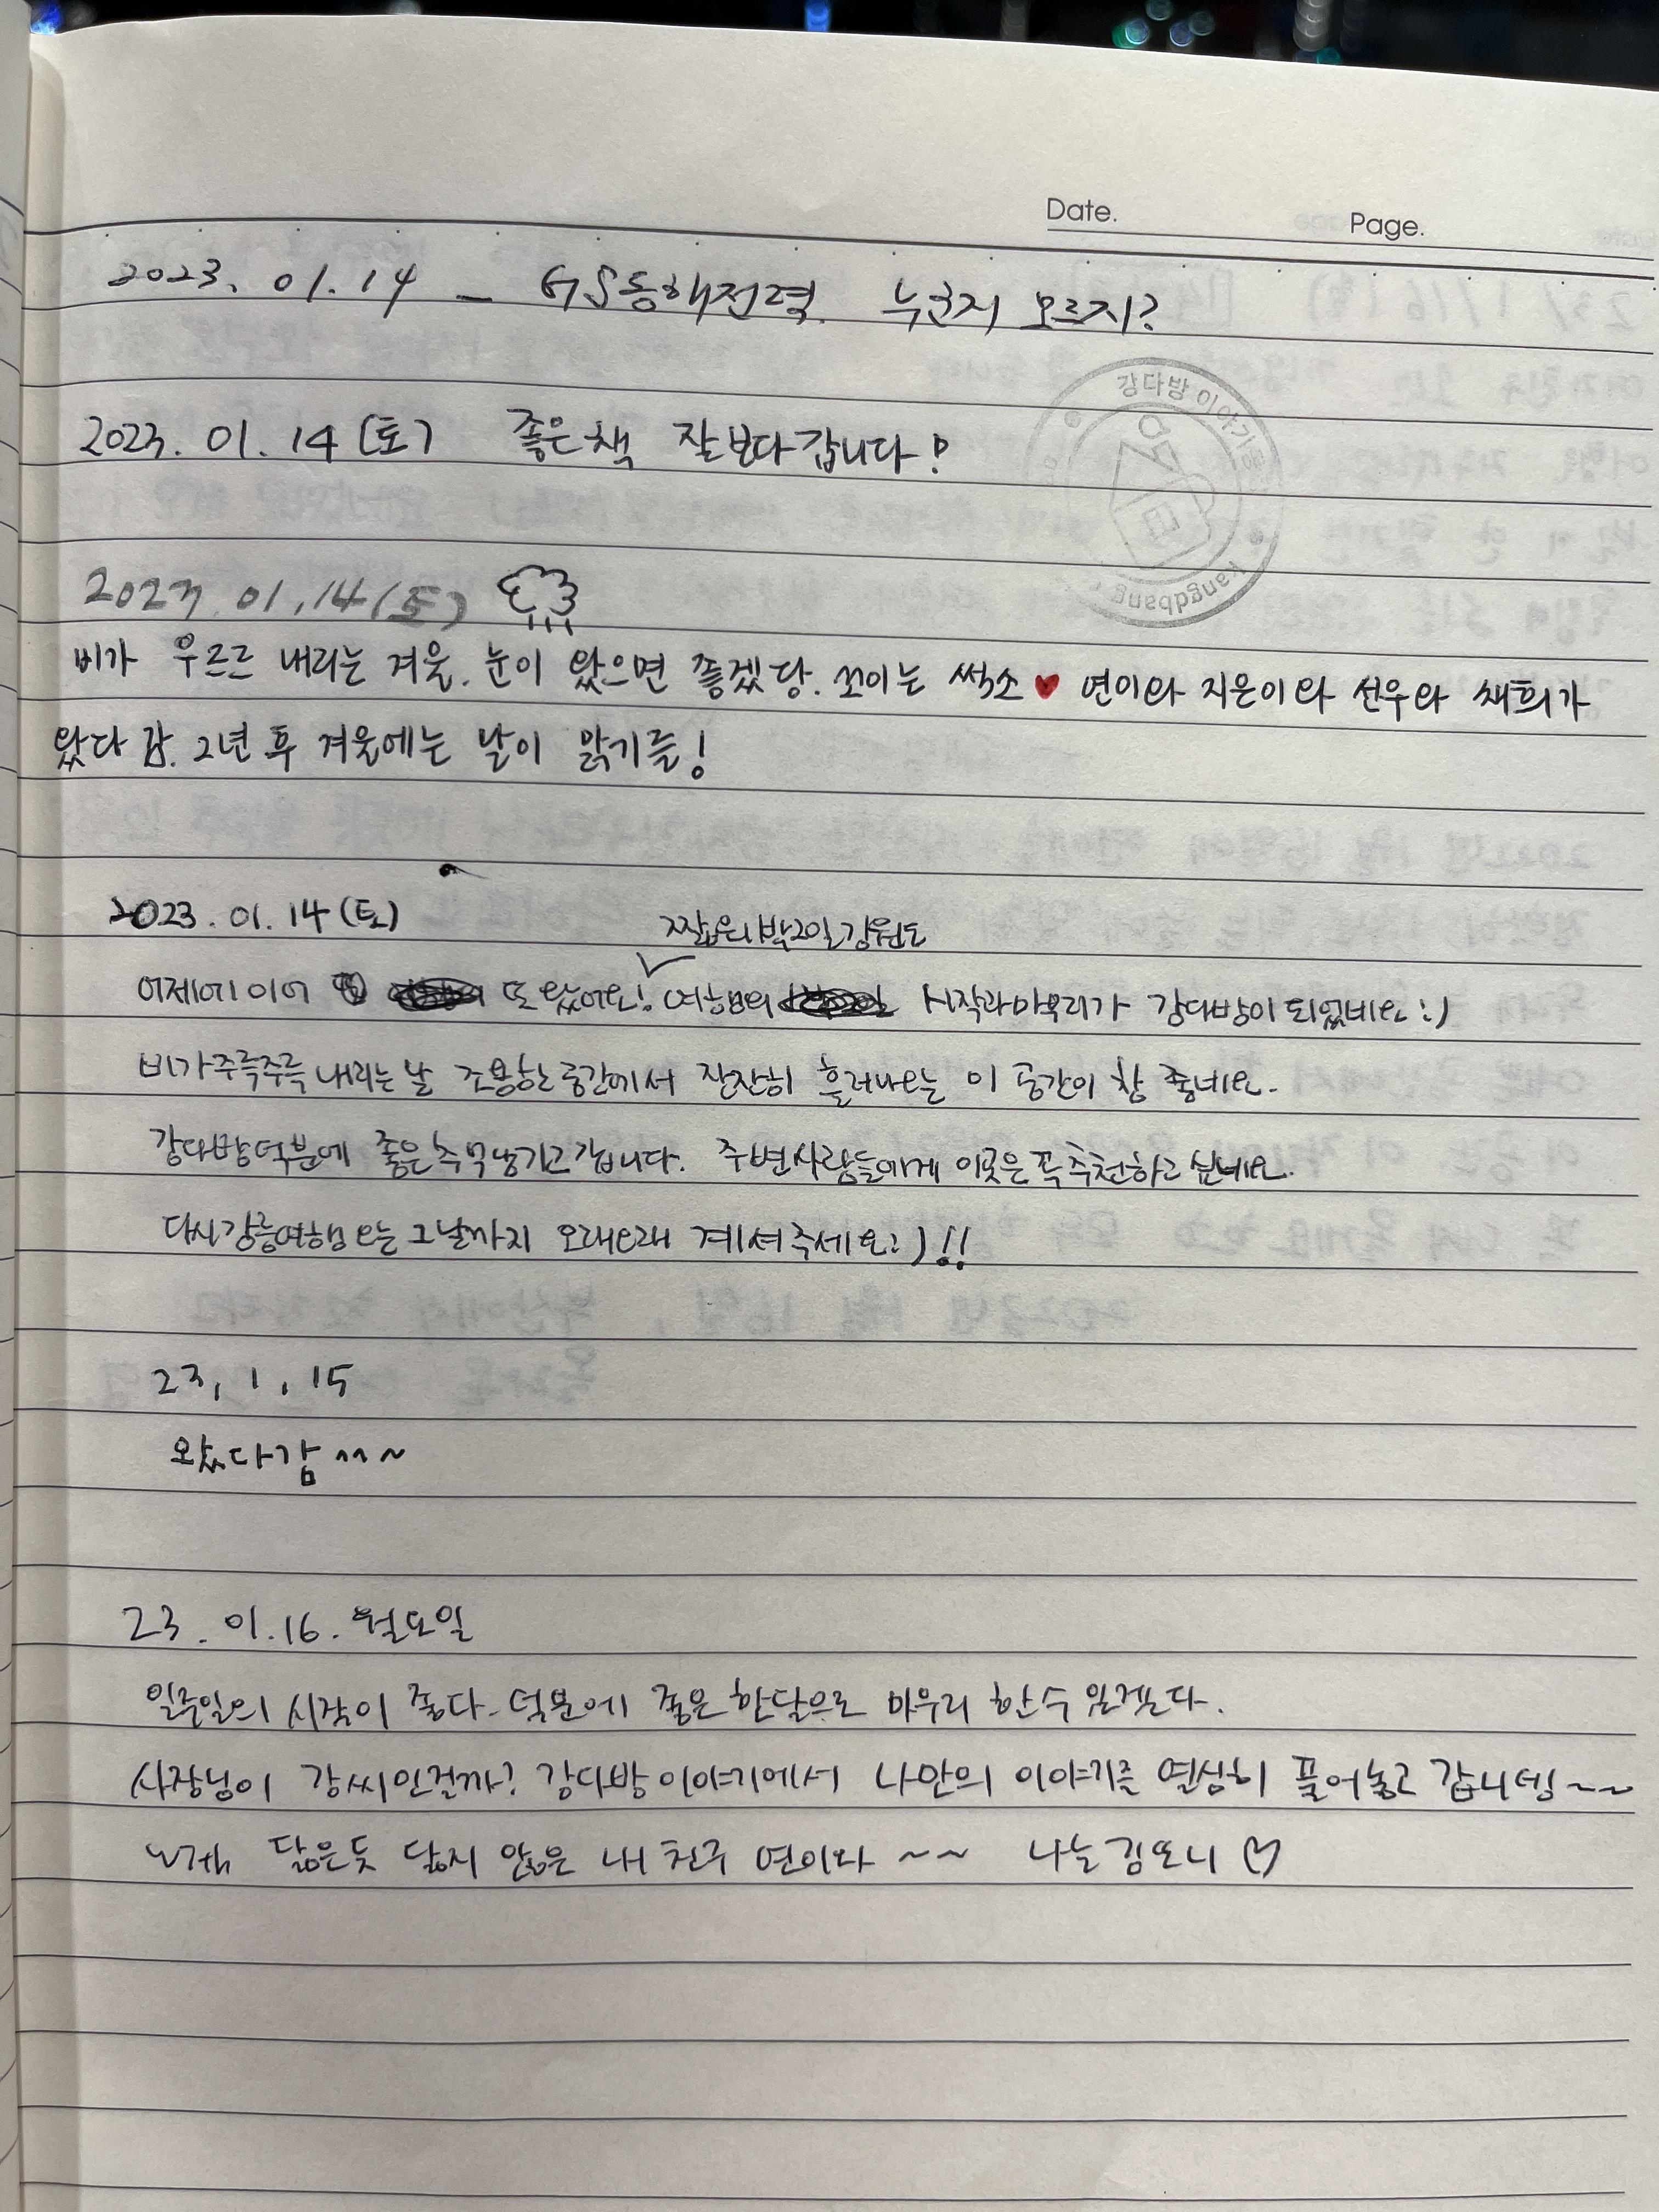 Date. Page.
2023. 01. 14 _ GS동해전력. 누군지 모르지?
강다방 이야기공
kangdbang
2023. 01. 14 (토) 좋은책 잘보다갑니다!
2023. 01. 14 (토)
비가 우르르 내리는 겨울. 눈이 왔으면 좋겠당. 쪼이는 썩소 ♥ 연이와 지은이와 선우와 채희가
왔다 감. 2년 후 겨울에는 날이 맑기를!
2023. 01. 14 (토)
짧은1박2일강원도
어제에이어 또 왔어요! 여행의 시작과마무리가 강다방이 되었네요 :)
비가주륵주륵 내리는 날 조용한 공간에서 잔잔히 흘러나오는 이 공간이 참 좋네요.
강다방덕분에 좋은추억남기고갑니다. 주변사람들에게 이곳은 꼭 추천하고 싶네요.
다시강릉여행 오는 그날까지 오래오래 계셔주세요:)!!
23, 1, 15
왔다감 ^^~
23. 01. 16. 월요일
일주일의 시작이 좋다. 덕분에 좋은 한달으로 마무리 할수 있겠다.
사장님이 강씨인걸까? 강다방이야기에서 나만의 이야기를 열심히 풀어놓고 갑니뎅~~
닮은듯 닮지 않은 내 친구 연이와 ~~ 나는 김또니 ♡